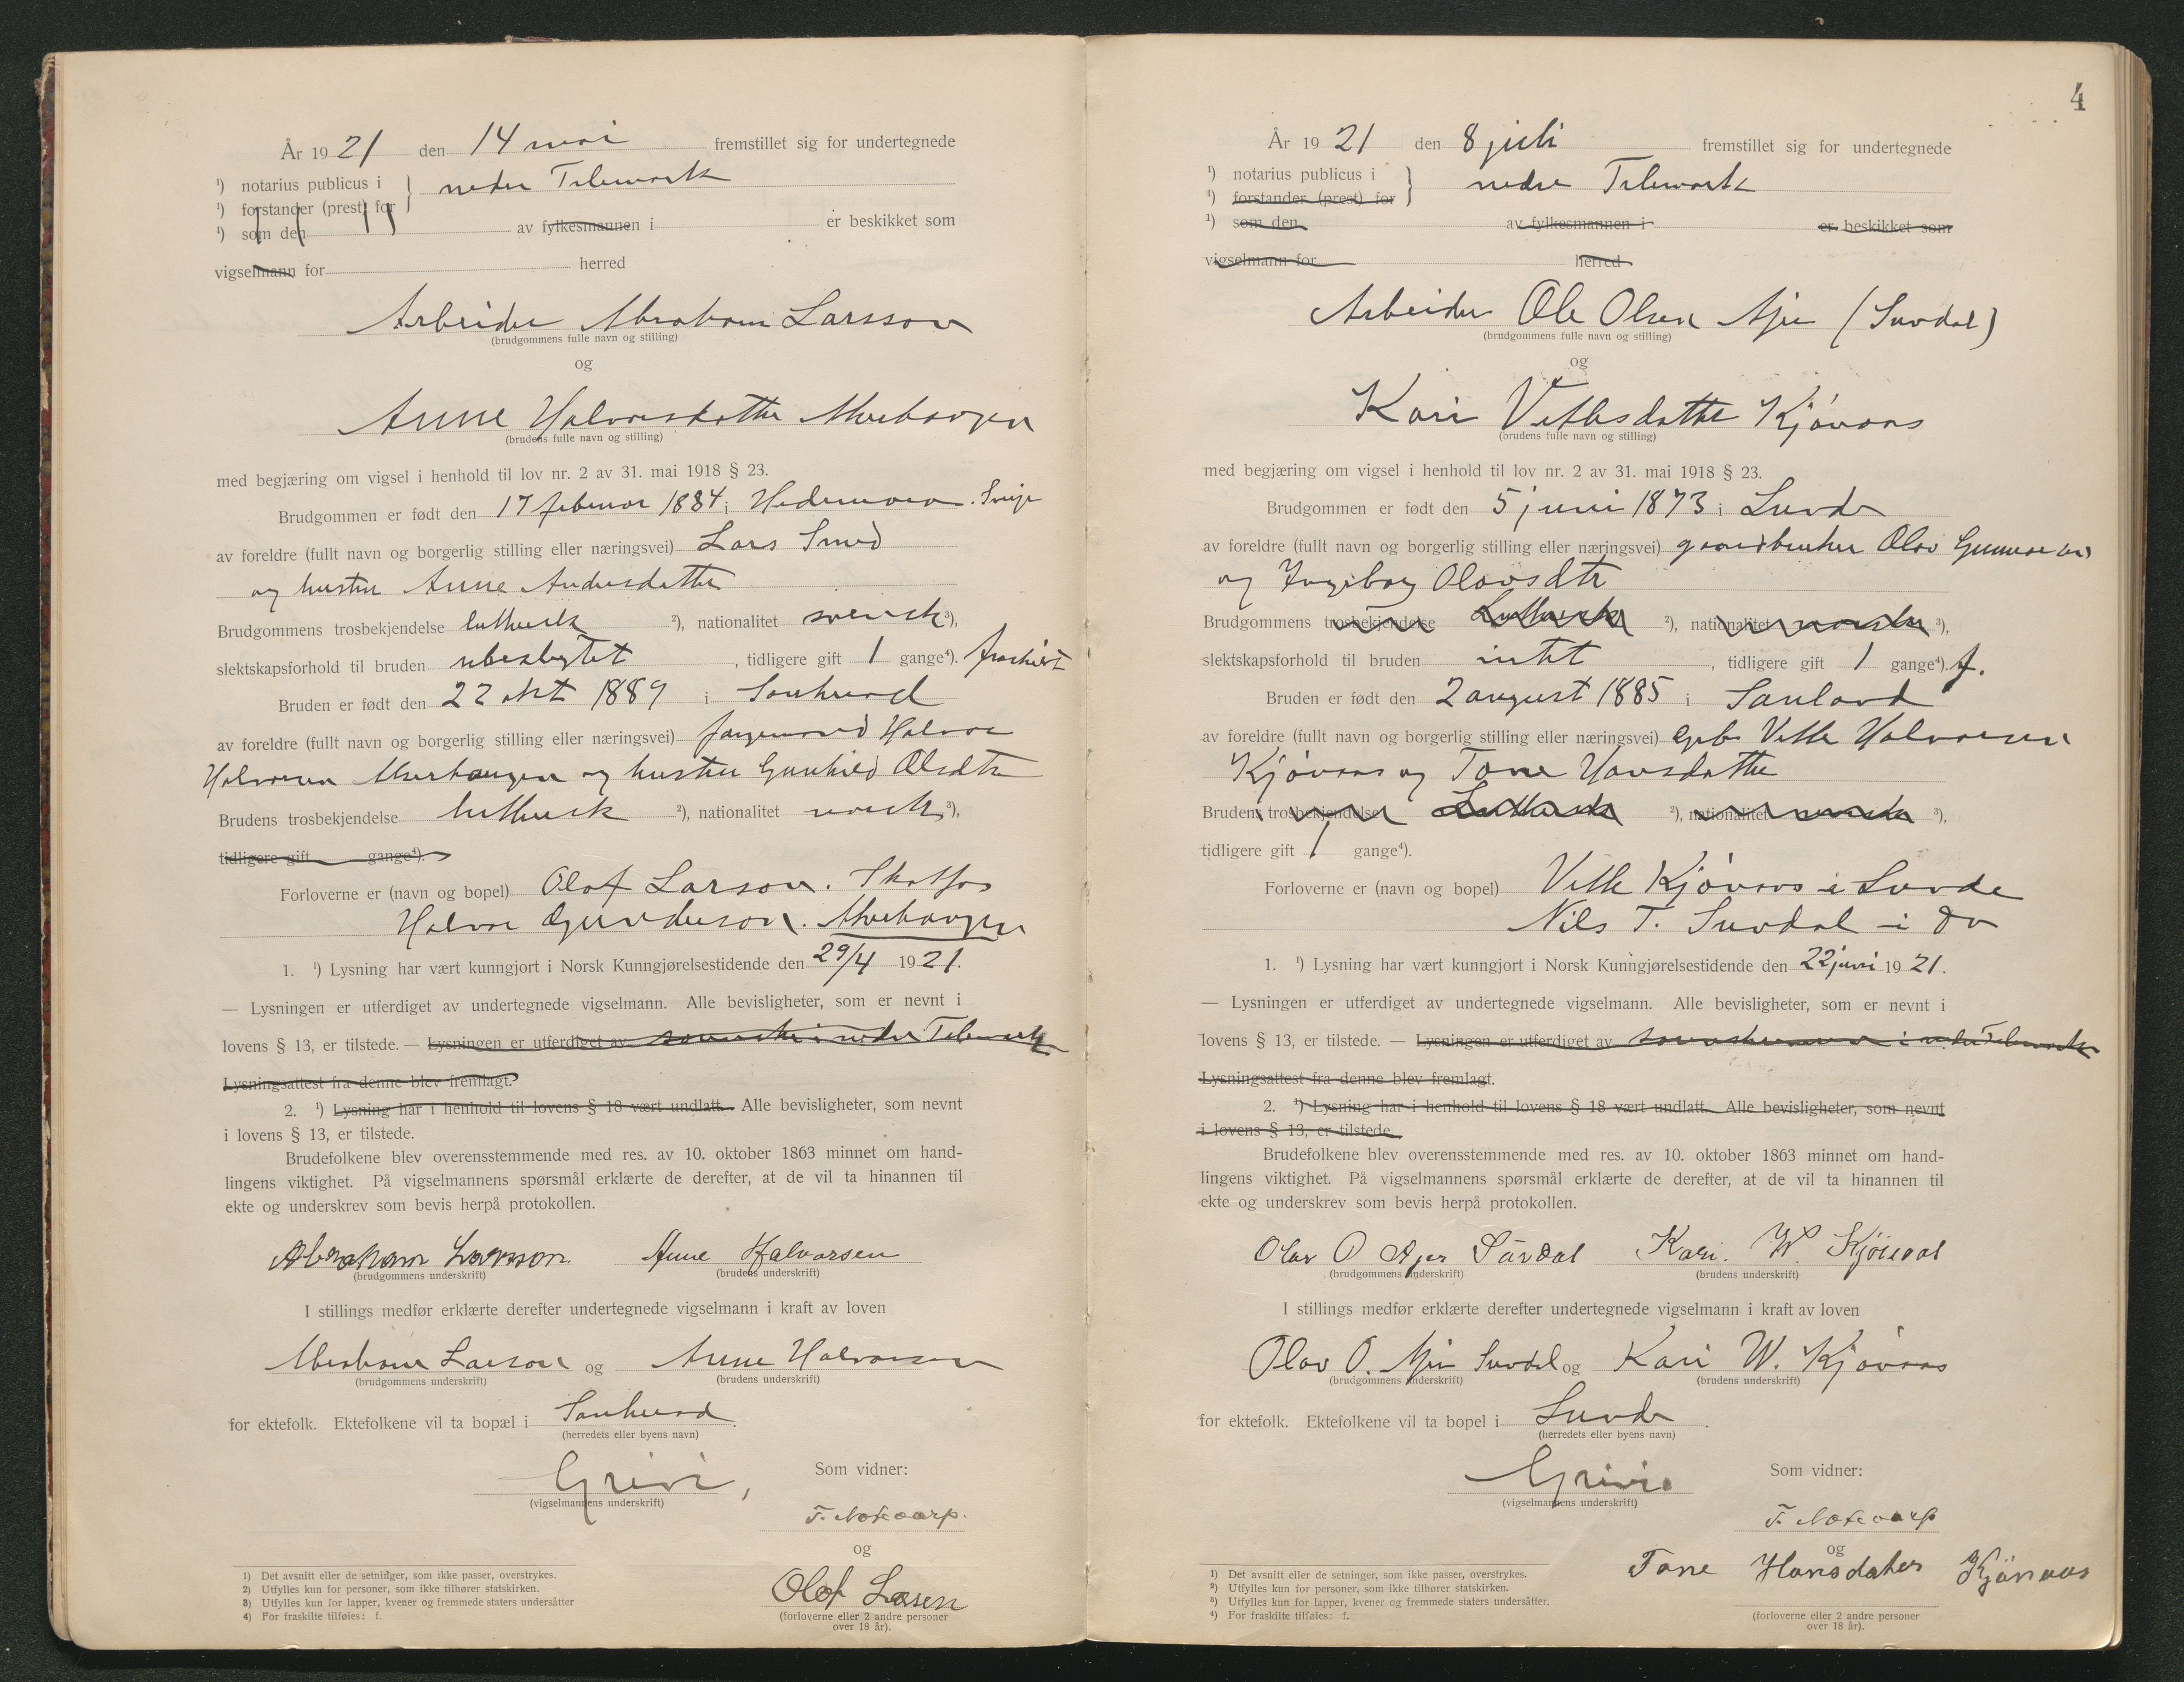 År 1921 den 14 mai fremstillet sig for undertegnede
¹) notarius publicus i } nedre Telemark
¹) forstander (prest) for
¹) som den av fylkesmannen i er beskikket som
vigselmann for herred
Arbeider Abraham Larsson
(brudgommens fulle navn og stilling)
og
Anne Halvorsdatter
(brudens fulle navn og stilling)
med begjæring om vigsel i henhold til lov nr. 2 av 31. mai 1918 § 23.
Brudgommen er født den 17 februar 1884 i Hedemora. Sverige
av foreldre (fullt navn og borgerlig stilling eller næringsvei) Lars Smed
og hustru Anne Andersdatter
Brudgommens trosbekjendelse luthersk ²), nationalitet svensk ³),
slektskapsforhold til bruden ubeslegtet, tidligere gift 1 gange⁴). fraskilt
Bruden er født den 22 okt 1889 i Sauherad
av foreldre (fullt navn og borgerlig stilling eller næringsvei) Halvor
Halvorsen og hustru Gunhild Olsdtr
Brudens trosbekjendelse luthersk ²), nationalitet norsk ³),
tidligere gift gange⁴).
Forloverne er (navn og bopel) Olof Larson. Skotfos
Halvor Gunderson.
1. ¹) Lysning har vært kunngjort i Norsk Kunngjørelsestidende den 29/4 1921.
— Lysningen er utferdiget av undertegnede vigselmann. Alle bevisligheter, som er nevnt i
lovens § 13, er tilstede. — Lysningen er utferdiget av i nedre Telemark
Lysningsattest fra denne blev fremlagt.
2. ¹) Lysning har i henhold til lovens § 18 vært undlatt. Alle bevisligheter, som nevnt
i lovens § 13, er tilstede.
Brudefolkene blev overensstemmende med res. av 10. oktober 1863 minnet om hand-
lingens viktighet. På vigselmannens spørsmål erklærte de derefter, at de vil ta hinannen til
ekte og underskrev som bevis herpå protokollen.
Abraham Larsson Anne Halvorsen
(brudgommens underskrift) (brudens underskrift)
I stillings medfør erklærte derefter undertegnede vigselmann i kraft av loven
Abraham Larson og Anne Halvorsen
(brudgommens underskrift) (brudens underskrift)
for ektefolk. Ektefolkene vil ta bopæl i Sauherad
(herredets eller byens navn)
Grivi,
(vigselmannens underskrift)
Som vidner:
T. Notevarp.
og
Olof Larsen
(forloverne eller 2 andre personer
over 18 år).
1) Det avsnitt eller de setninger, som ikke passer, overstrykes.
2) Utfylles kun for personer, som ikke tilhører statskirken.
3) Utfylles kun for lapper, kvener og fremmede staters undersåtter
4) For fraskilte tilføies: f.
4
År 1921 den 8 juli fremstillet sig for undertegnede
¹) notarius publicus i } nedre Telemark
¹) forstander (prest) for
¹) som den av fylkesmannen i er beskikket som
vigselmann for herred
Arbeider Ole Olsen Ajer (Suvdal)
(brudgommens fulle navn og stilling)
og
Kari Vetlesdatter Kjøvaas
(brudens fulle navn og stilling)
med begjæring om vigsel i henhold til lov nr. 2 av 31. mai 1918 § 23.
Brudgommen er født den 5 juni 1873 i Lunde
av foreldre (fullt navn og borgerlig stilling eller næringsvei) gaardbruker Olav Gunnarsen
og Ingeborg Olavsdtr
Brudgommens trosbekjendelse Luthersk ²), nationalitet norsk ³),
slektskapsforhold til bruden intet, tidligere gift 1 gange⁴). f.
Bruden er født den 2 august 1885 i Sauland
av foreldre (fullt navn og borgerlig stilling eller næringsvei) Gpb Vetle Halvorsen
Kjøvaas og Tone Hansdatter
Brudens trosbekjendelse Luthersk ²), nationalitet norsk ³),
tidligere gift 1 gange⁴).
Forloverne er (navn og bopel) Vetle Kjøvaas i Lunde
Nils T. Suvdal i do
1. ¹) Lysning har vært kunngjort i Norsk Kunngjørelsestidende den 22 juni 1921.
— Lysningen er utferdiget av undertegnede vigselmann. Alle bevisligheter, som er nevnt i
lovens § 13, er tilstede. — Lysningen er utferdiget av i nedre Telemark
Lysningsattest fra denne blev fremlagt.
2. ¹) Lysning har i henhold til lovens § 18 vært undlatt. Alle bevisligheter, som nevnt
i lovens § 13, er tilstede.
Brudefolkene blev overensstemmende med res. av 10. oktober 1863 minnet om hand-
lingens viktighet. På vigselmannens spørsmål erklærte de derefter, at de vil ta hinannen til
ekte og underskrev som bevis herpå protokollen.
Olav O Ajer Suvdal Kari. W.
(brudgommens underskrift) (brudens underskrift)
I stillings medfør erklærte derefter undertegnede vigselmann i kraft av loven
Olav O. Ajer Suvdal og Kari W. Kjøvaas
(brudgommens underskrift) (brudens underskrift)
for ektefolk. Ektefolkene vil ta bopel i Lunde.
(herredets eller byens navn)
Grivi
(vigselmannens underskrift)
Som vidner:
T. Notevarp
og
Tone Hansdater Kjövaas
(forloverne eller 2 andre personer
over 18 år).
¹) Det avsnitt eller de setninger, som ikke passer, overstrykes.
²) Utfylles kun for personer, som ikke tilhører statskirken.
³) Utfylles kun for lapper, kvener og fremmede staters undersåtter.
⁴) For fraskilte tilføies: f.